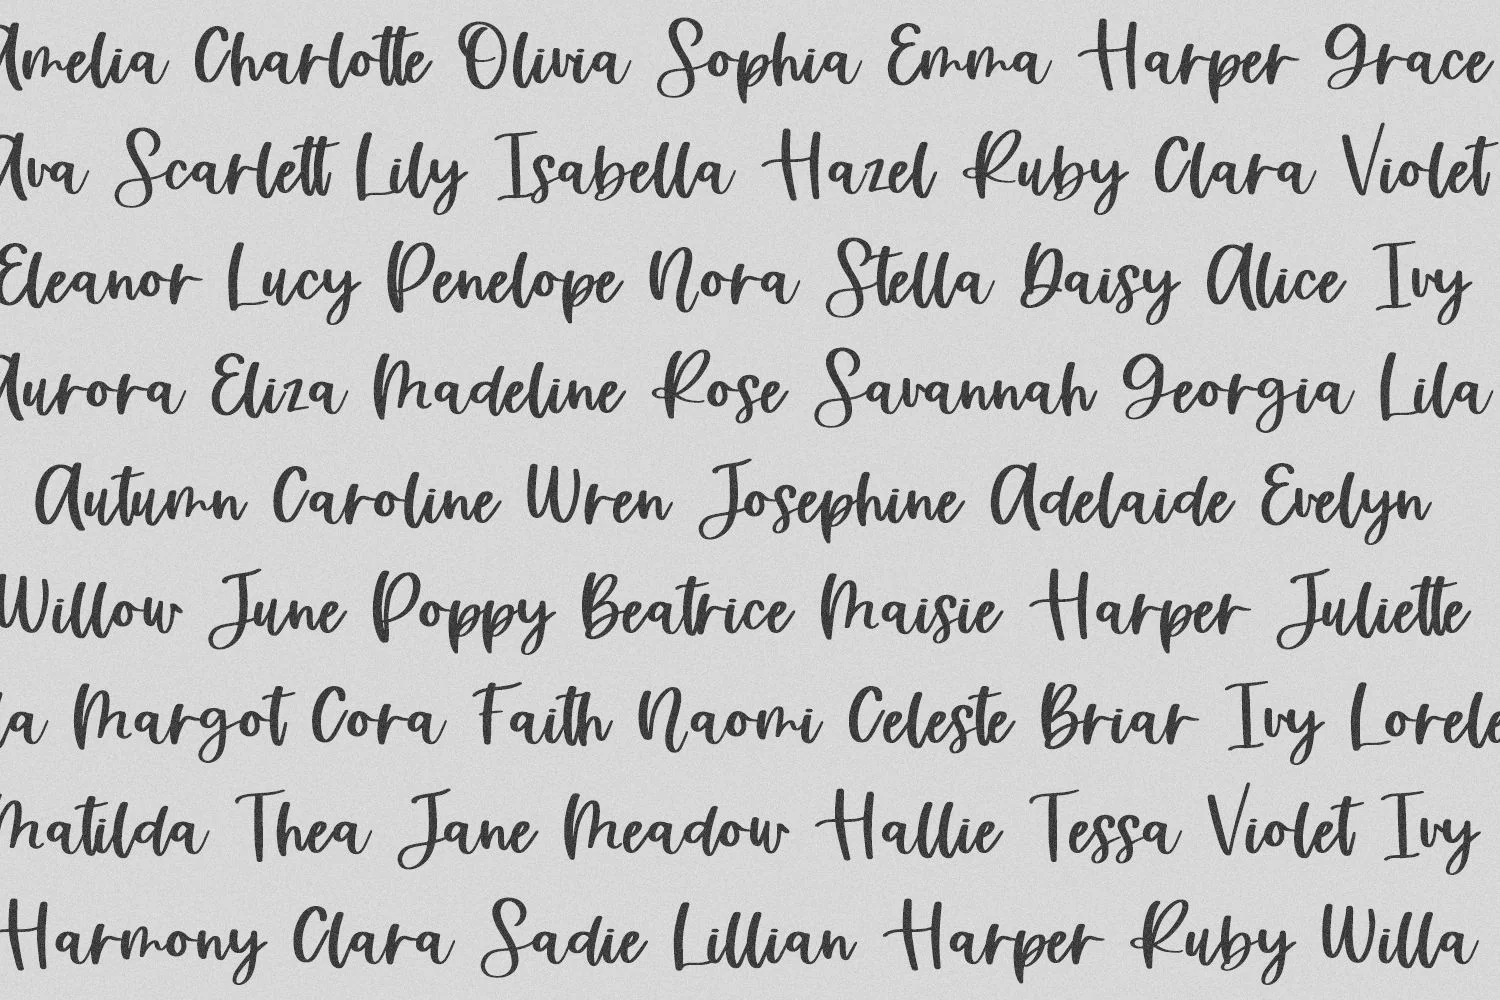 Amelia Charlotte Olivia Sophia Emma Harper Grace
Ava Scarlett Lily Isabella Hazel Ruby Clara Violet
Eleanor Lucy Penelope Nora Stella Daisy Alice Ivy
Aurora Eliza Madeline Rose Savannah Georgia Lila
Autumn Caroline Wren Josephine Adelaide Evelyn
Willow June Poppy Beatrice Maisie Harper Juliette
Margot Cora Faith Naomi Celeste Briar Ivy
Matilda Thea Jane Meadow Hallie Tessa Violet Ivy
Harmony Clara Sadie Lillian Harper Ruby Willa